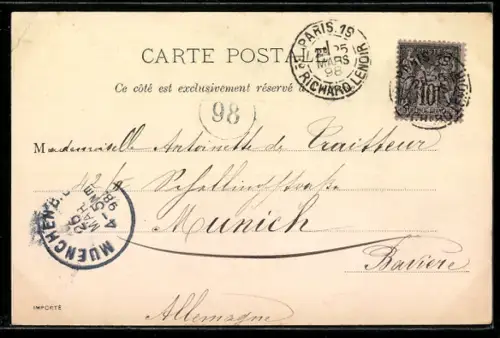 CARTE POSTALE
Ce côté est exclusivement réservé à
PARIS 19
25
MARS
98
Rᴅ RICHARD LENOIR
10
98
Mademoiselle Antoinette de Traitteur
42/II Schellingstraße
Munich
Bavière
Allemagne
MUENCHEN
25
MAR
4-5 NM
98
IMPORTÉ